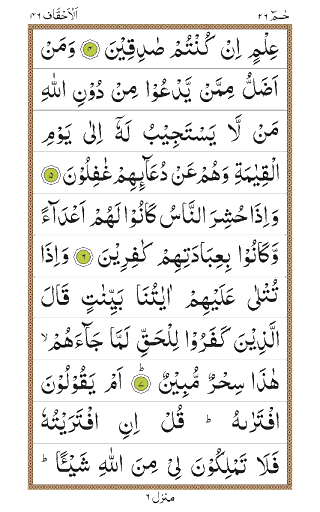 حٰمٓ ٢٦ اَلْاَحْقَاف ٤٦
عِلْمٍ اِنْ كُنْتُمْ صٰدِقِيْنَ ۝٤ وَمَنْ
اَضَلُّ مِمَّنْ يَّدْعُوْا مِنْ دُوْنِ اللّٰهِ
مَنْ لَّا يَسْتَجِيْبُ لَهٗٓ اِلٰى يَوْمِ
الْقِيٰمَةِ وَهُمْ عَنْ دُعَآئِهِمْ غٰفِلُوْنَ ۝٥
وَاِذَا حُشِرَ النَّاسُ كَانُوْا لَهُمْ اَعْدَآءً
وَّكَانُوْا بِعِبَادَتِهِمْ كٰفِرِيْنَ ۝٦ وَاِذَا
تُتْلٰى عَلَيْهِمْ اٰيٰتُنَا بَيِّنٰتٍ قَالَ
الَّذِيْنَ كَفَرُوْا لِلْحَقِّ لَمَّا جَآءَهُمْ ۙ
هٰذَا سِحْرٌ مُّبِيْنٌ ۝٧ؕ اَمْ يَقُوْلُوْنَ
افْتَرٰىهُ ؕ قُلْ اِنِ افْتَرَيْتُهٗ
فَلَا تَمْلِكُوْنَ لِيْ مِنَ اللّٰهِ شَيْـًٔا ؕ
منزل ٦